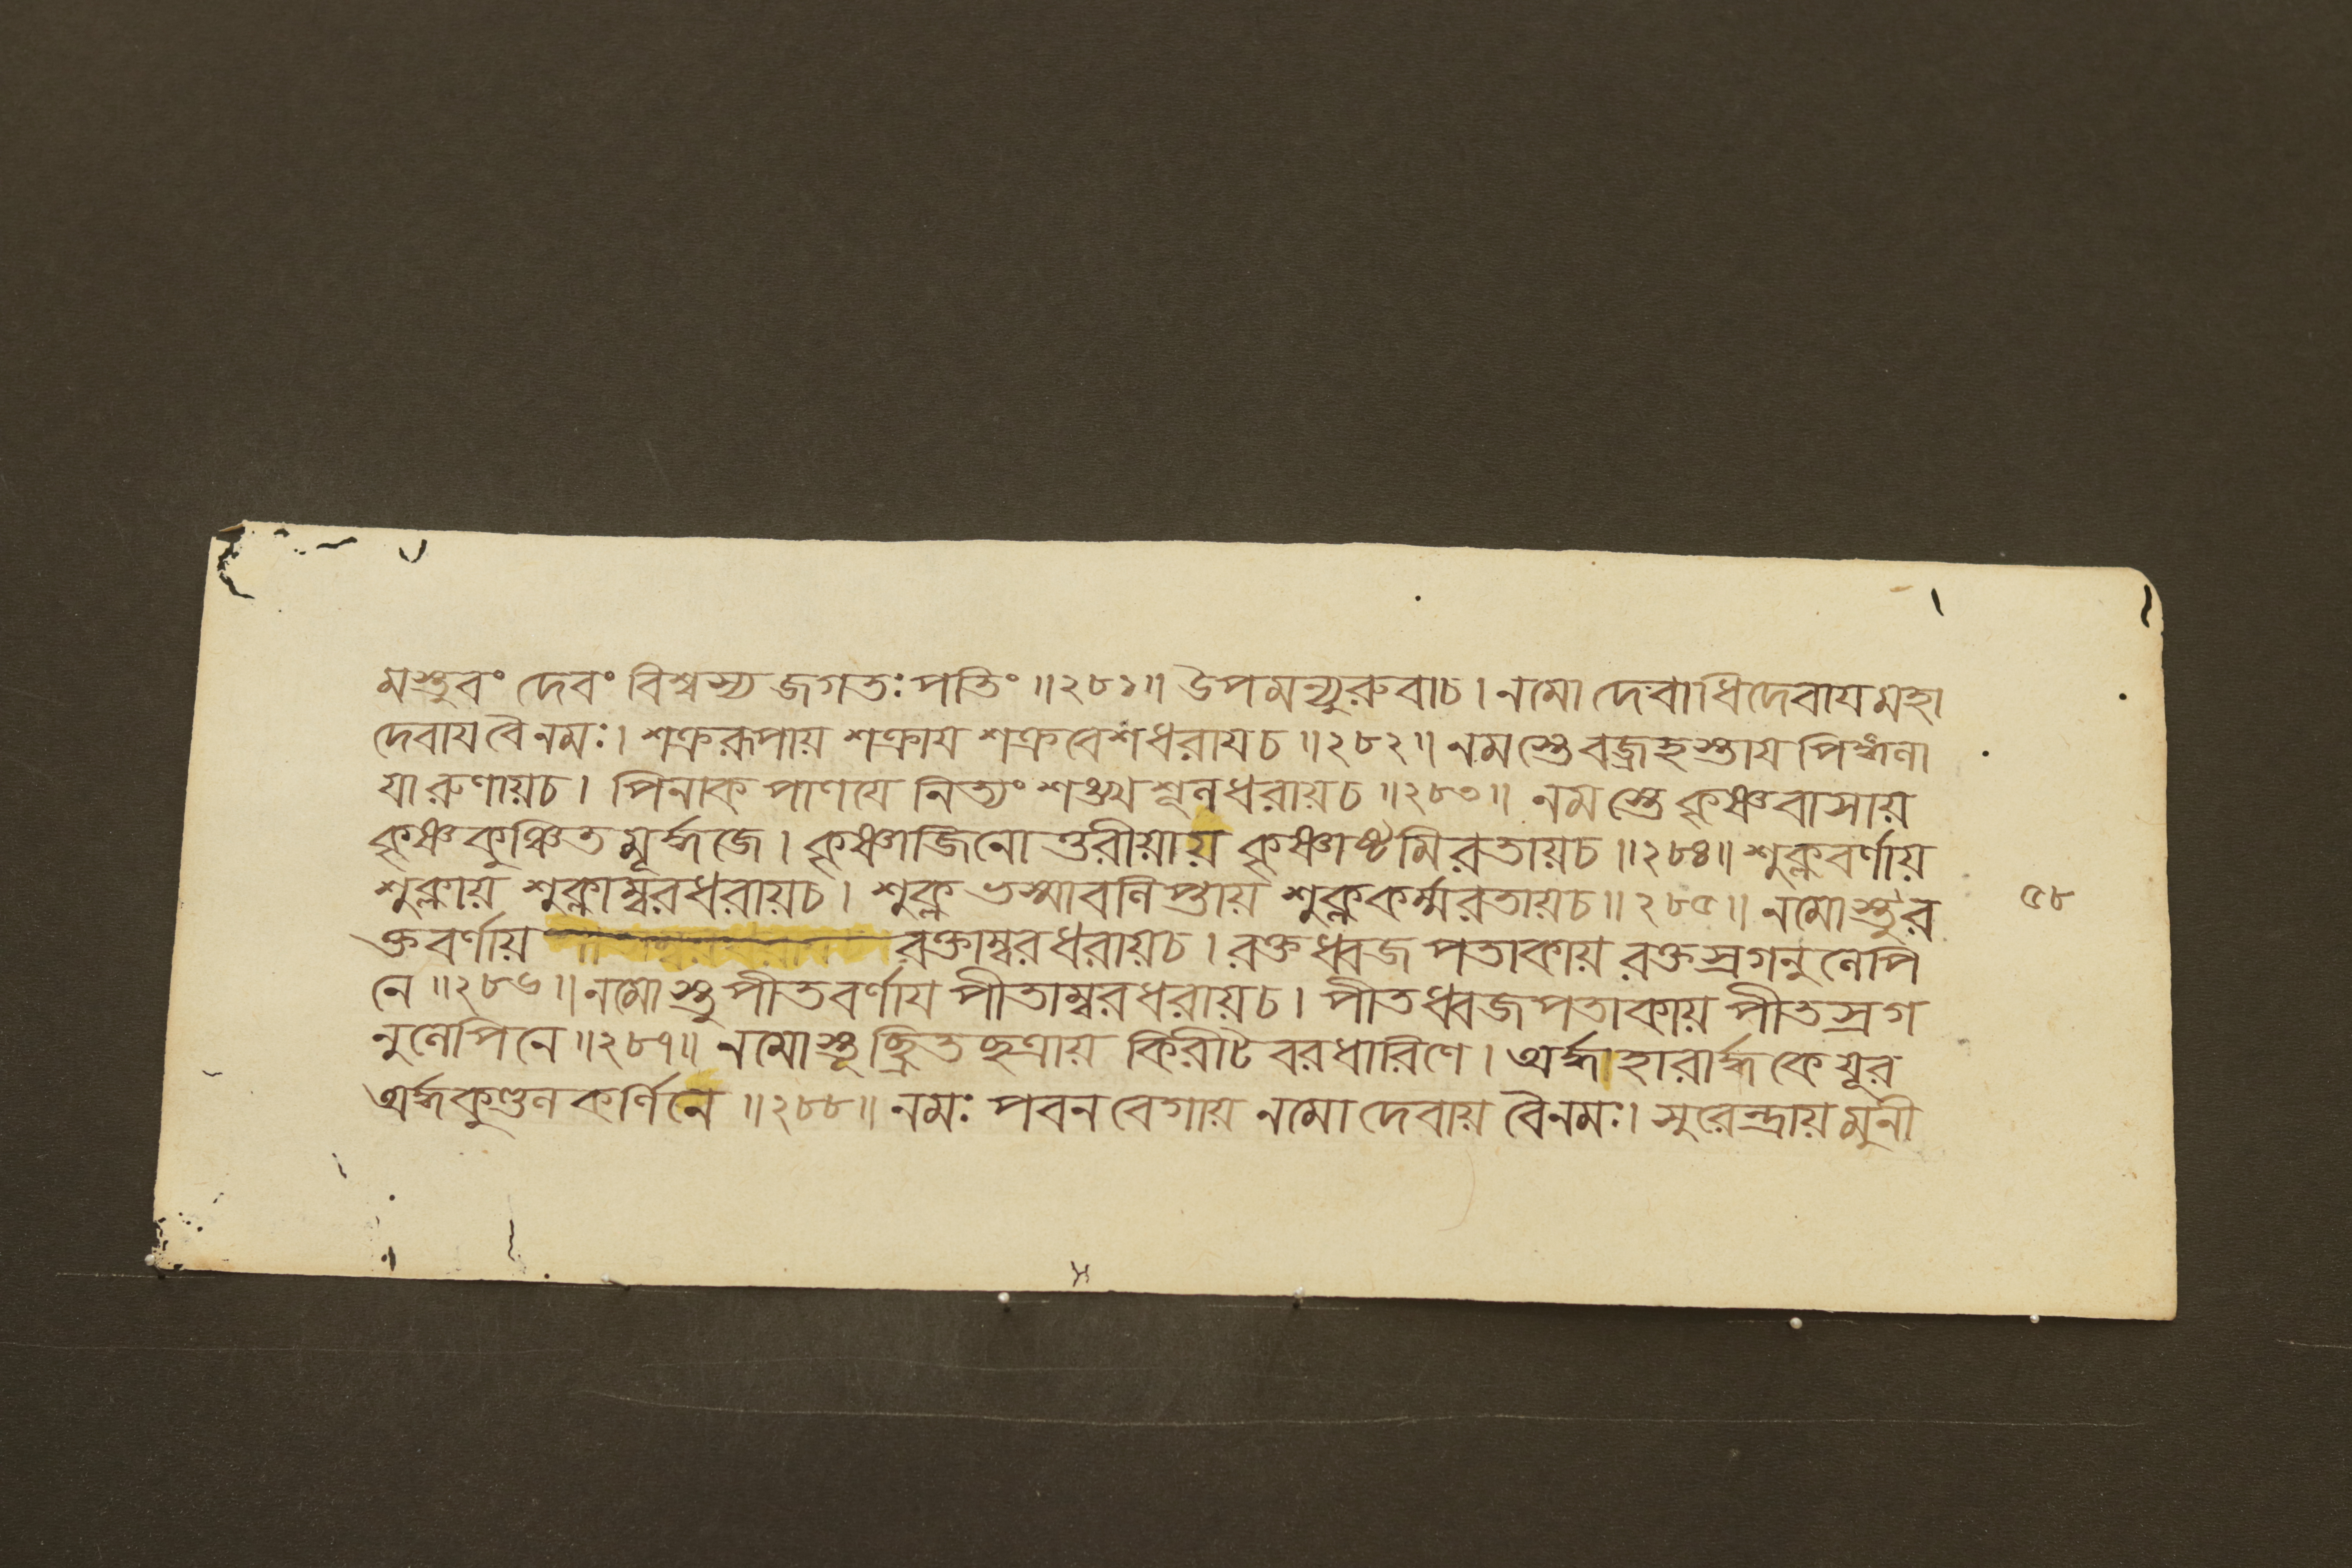 মস্তুবং দেবং বিশ্বস্য জগতঃ পতিং ॥২৮১॥ উপমন্যুরুবাচ । নমো দেবাধিদেবায মহা
দেবায বৈনমঃ । শক্ররূপায় শক্রায শক্রবেশধরায়চ ॥২৮২॥ নমস্তে বজ্রহস্তায পিঙ্গলা
যারুণায়চ । পিনাক পাণযে নিত্যং শঙ্খশূলধরায়চ ॥২৮৩॥ নমস্তে কৃষ্ণবাসায়
কৃষ্ণকুঞ্চিত মূর্দ্ধজে । কৃষ্ণাজিনোত্তরীয়ায় কৃষ্ণাষ্টমিরতায়চ ॥২৮৪॥ শুক্লবর্ণায়
শুক্লায় শুক্লাম্বরধরায়চ । শুক্ল ভস্মাবলিপ্তায় শুক্লকর্ম্মরতায়চ ॥২৮৫॥ নমোস্তুর
৫৮
ক্তবর্ণায় রক্তাম্বরধরায়চ । রক্তধ্বজ পতাকায় রক্তস্রগনুলেপি
নে ॥২৮৬॥ নমোস্তু পীতবর্ণায পীতাম্বরধরায়চ । পীতধ্বজপতাকায় পীতস্রগ
নুলেপিনে ॥২৮৭॥ নমোস্তূচ্ছ্রিতছত্রায় কিরীটবরধারিণে । অর্দ্ধহারার্দ্ধকেযূর
অর্দ্ধকুণ্ডলকর্ণিনে ॥২৮৮॥ নমঃ পবনবেগায় নমো দেবায় বৈনমঃ । সুরেন্দ্রায় মুনী